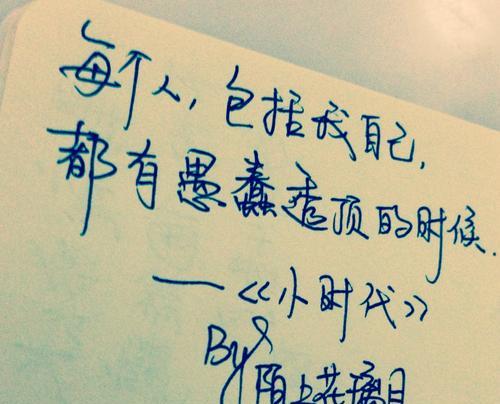 每个人，包括我自己，
都有愚蠢透顶的时候.
——《小时代》
By 陌上花